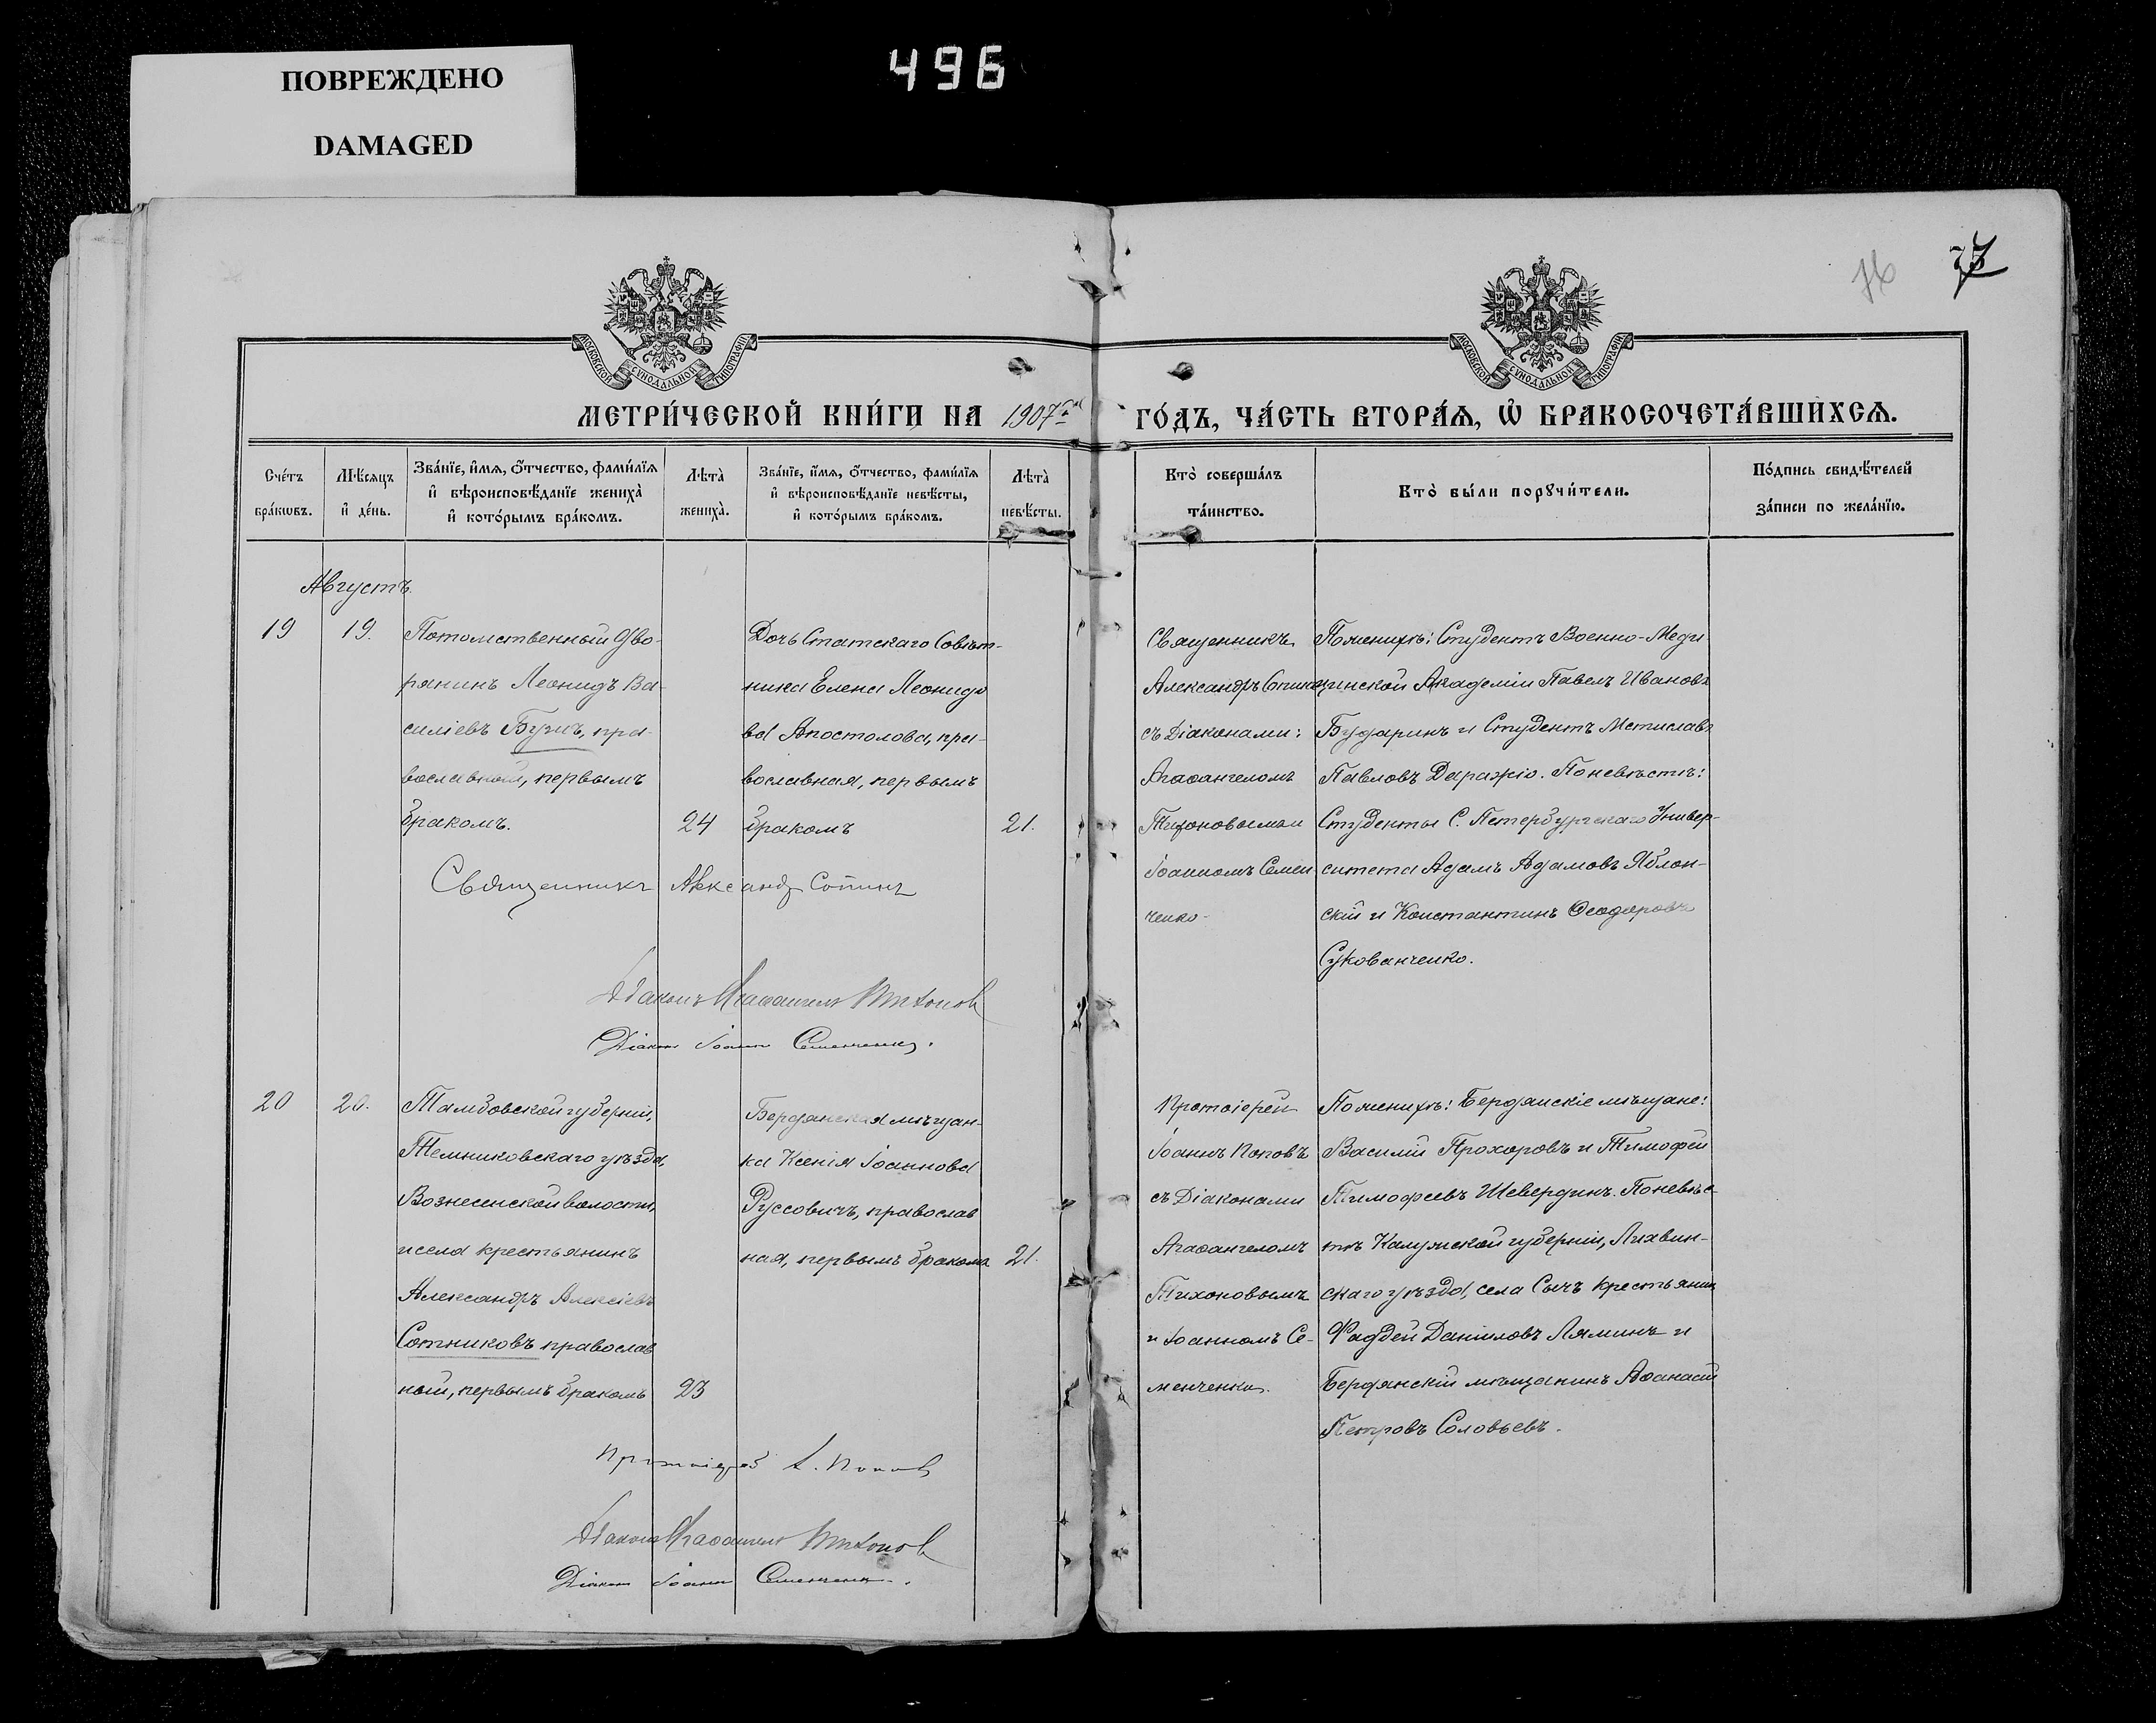 ПОВРЕЖДЕНО
DAMAGED
496
76
77
МОСКОВСКОЙ СѴНОДАЛЬНОЙ ТИПОГРАФІИ
МОСКОВСКОЙ СѴНОДАЛЬНОЙ ТИПОГРАФІИ
МЕТРИ́ЧЕСКОЙ КНИ́ГИ НА 1907й ГО́ДЪ, ЧА́СТЬ ВТОРА́Я, Ѿ БРАКОСОЧЕТА́ВШИХСЯ.
Сче́тъ
бра́кѡвъ.
Мѣ́сяцъ
и҆ де́нь.
Зва́нїе, и҆́мя, ѻ҆́тчество, фами́лїя
и҆ вѣроисповѣ́данїе жениха̀
и҆ кото́рымъ бра́комъ.
Лѣта̀
жениха̀.
Зва́нїе, и҆́мя, ѻ҆́тчество, фами́лїя
и҆ вѣроисповѣ́данїе невѣ́сты,
и҆ кото́рымъ бра́комъ.
Лѣта̀
невѣ́сты.
Кто̀ соверша́лъ
та́инство.
Кто̀ бы́ли порꙋчи́тели.
По́дпись свидѣ́телей
за́писи по жела́нїю.
Августъ.
19
19.
Потомственный Дво-
рянинъ Леонидъ Ва-
силіевъ Бузъ, пра-
вославный, первымъ
бракомъ.
24
Дочь Статскаго Совѣт-
ника Елена Леонидо
ва Апостолова, пра-
вославная, первымъ
бракомъ
21.
Священникъ
Александръ Сопинъ
съ Діаконами:
Агаѳангеломъ
Тихоновымъ и
Іоанномъ Семен
ченко
По женихѣ: Студентъ Военно-Меди
цинской Академіи Павелъ Ивановъ
Бударинъ и Студентъ Мстиславъ
Павловъ Даражіо. По невѣстѣ:
Студенты С. Петербургскаго Универ-
ситета Адамъ Адамовъ Яблон-
скій и Константинъ Ѳеодоровъ
Сукованченко.
Священникъ Александръ Сопинъ
Діаконъ Агаѳангелъ Тихонов
Діаконъ Іоаннъ Семенченко.
20
20.
Тамбовской губерніи,
Темниковскаго уѣзда,
Вознесенской волости,
и села крестьянинъ
Александръ Алексіевъ
Сотниковъ православ
ный, первымъ бракомъ
23
Бердянская мѣщан-
ка Ксенія Іоаннова
Руссовичъ, православ
ная, первымъ бракомъ
21.
Протоіерей
Іоаннъ Поповъ
съ Діаконами
Агаѳангеломъ
Тихоновымъ
и Іоанномъ Се-
менченко.
По женихѣ: Бердянскіе мѣщане:
Василій Прохоровъ и Тимофей
Тимофеевъ Шевердинъ. По невѣс-
тѣ Калужской губерніи, Лихвин-
скаго уѣзда, села Сычъ крестьянин
Фаддей Даниловъ Ляминъ и
Бердянскій мѣщанинъ Аѳанасій
Петровъ Соловьевъ.
Протоіерей І. Поповъ
Діаконъ Агаѳангелъ Тихонов
Діаконъ Іоаннъ Семенченко.